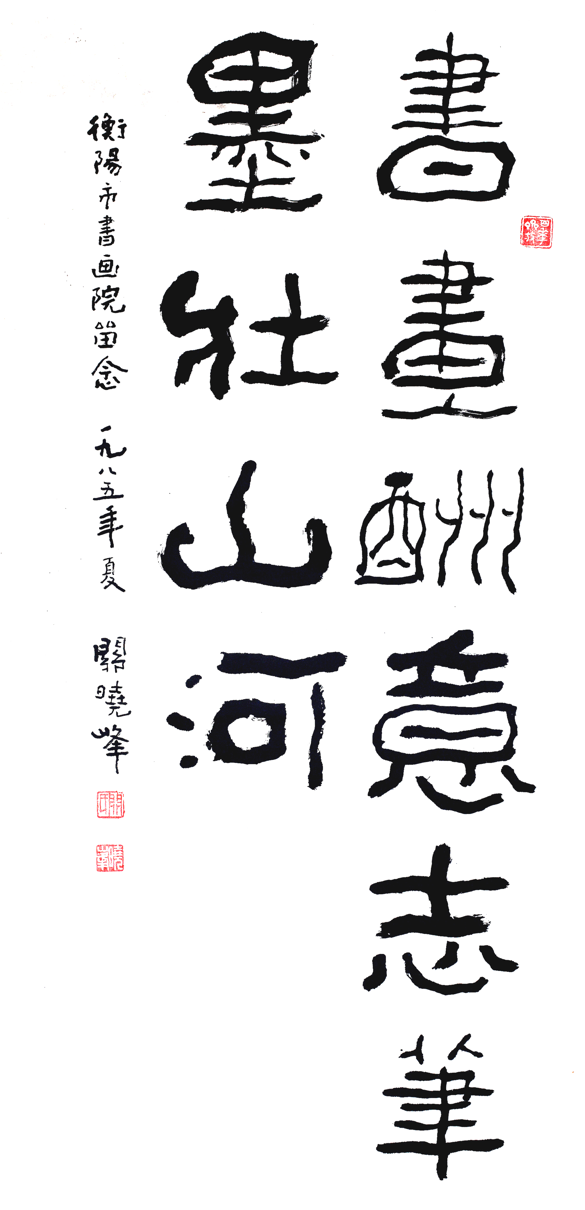 書畫酬意志筆
墨壯山河
衡陽市書画院留念 一九八五年夏 關曉峰